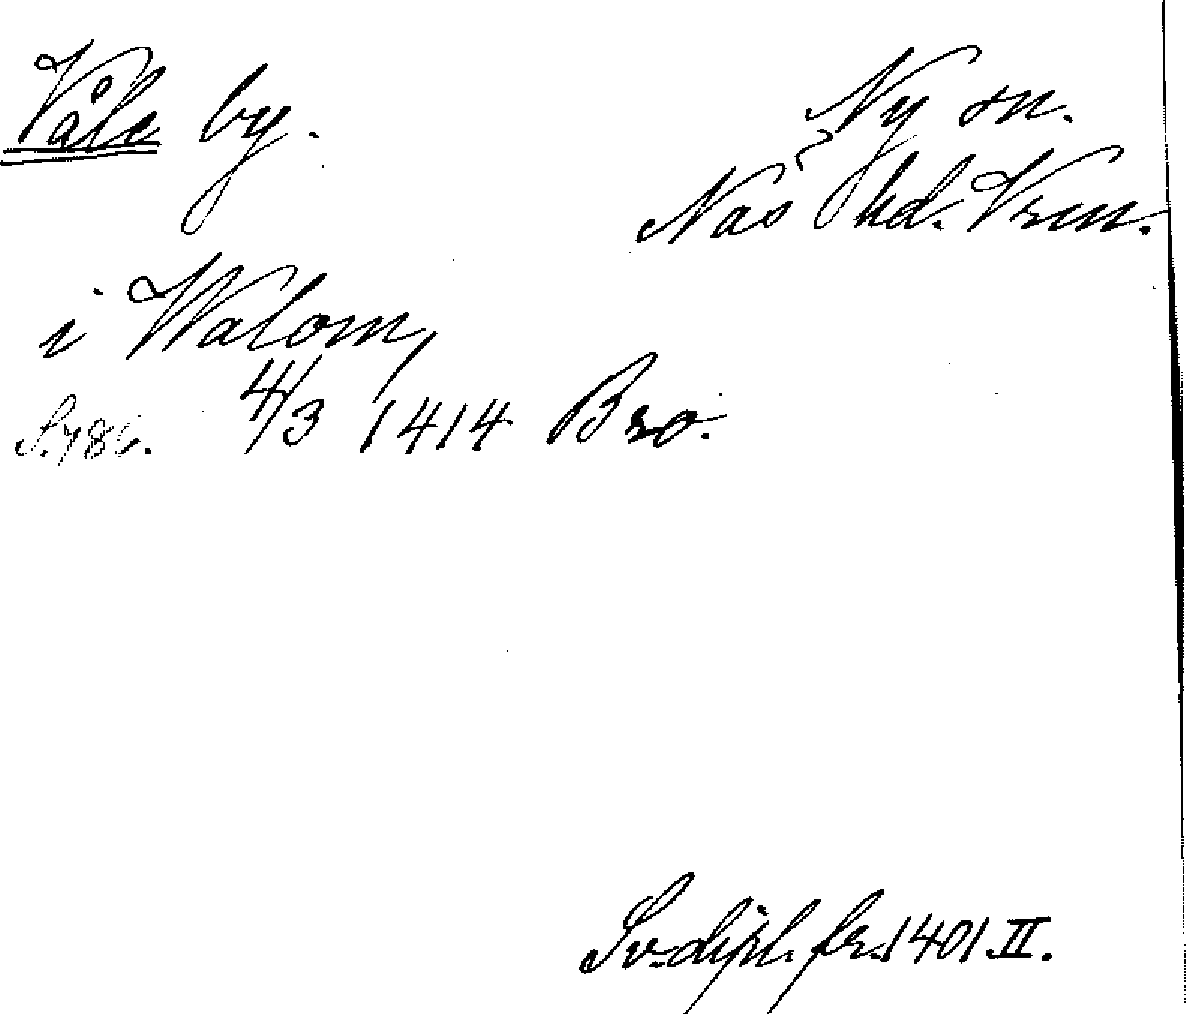 Våle by. Ny sn.
Näs hd. Vrm.
i Walom,
S. 786. 4/3 1414 Bro.
Sv. dipl. fr. 1401 II.